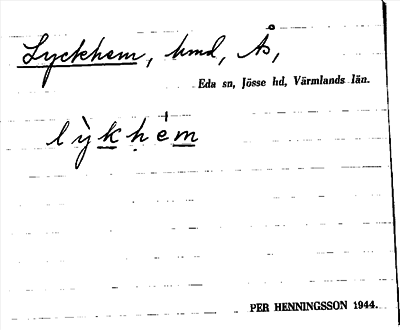 Lyckhem, hmd, Ås,
Eda sn, Jösse hd, Värmlands län.
lỳkhém
PER HENNINGSSON 1944.